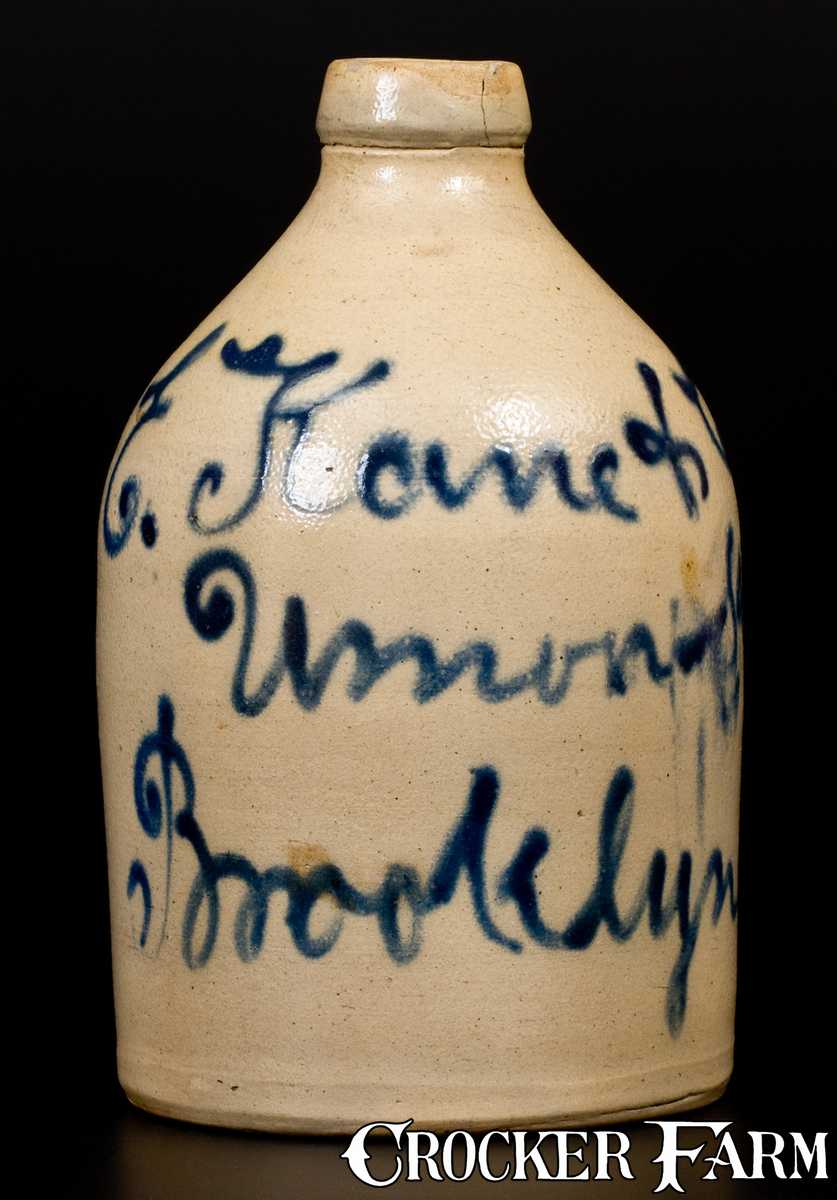 E. Kane &
Union S
Brooklyn
CROCKER FARM